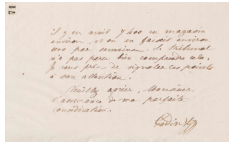 il y en avait 7400 en magasin
environ, et on en faisait environ
une par semaine. Le tribunal
n'a pas paru bien comprendre cela.
Je vous prie de signaler ces points
à son attention.
Veuillez agréer, Monsieur
l'assurance de ma parfaite
considération.
Godin